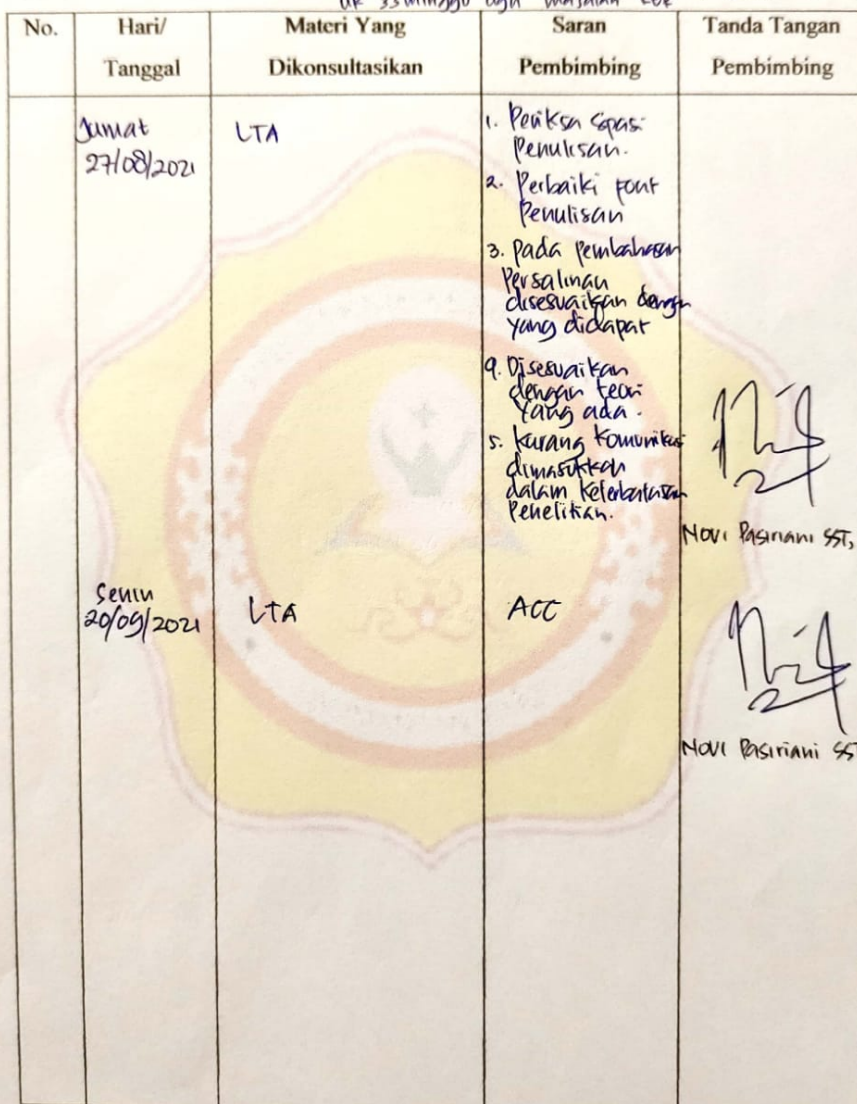 UK 35 minggu dgn masalah KEK
No.
Hari/
Tanggal
Materi Yang
Dikonsultasikan
Saran
Pembimbing
Tanda Tangan
Pembimbing
Jumat
27/08/2021
LTA
1. Periksa spasi
Penulisan.
2. Perbaiki font
Penulisan
3. pada pembahasan
Persalinan
disesuaikan dengan
yang didapat
4. Disesuaikan
dengan teori
yang ada.
5. Kurang Komunikasi
dimasukkan
dalam keterbatasan
Penelitian.
Novi Pasiriani SST,
Senin
20/09/2021
LTA
ACC
Novi Pasiriani SST